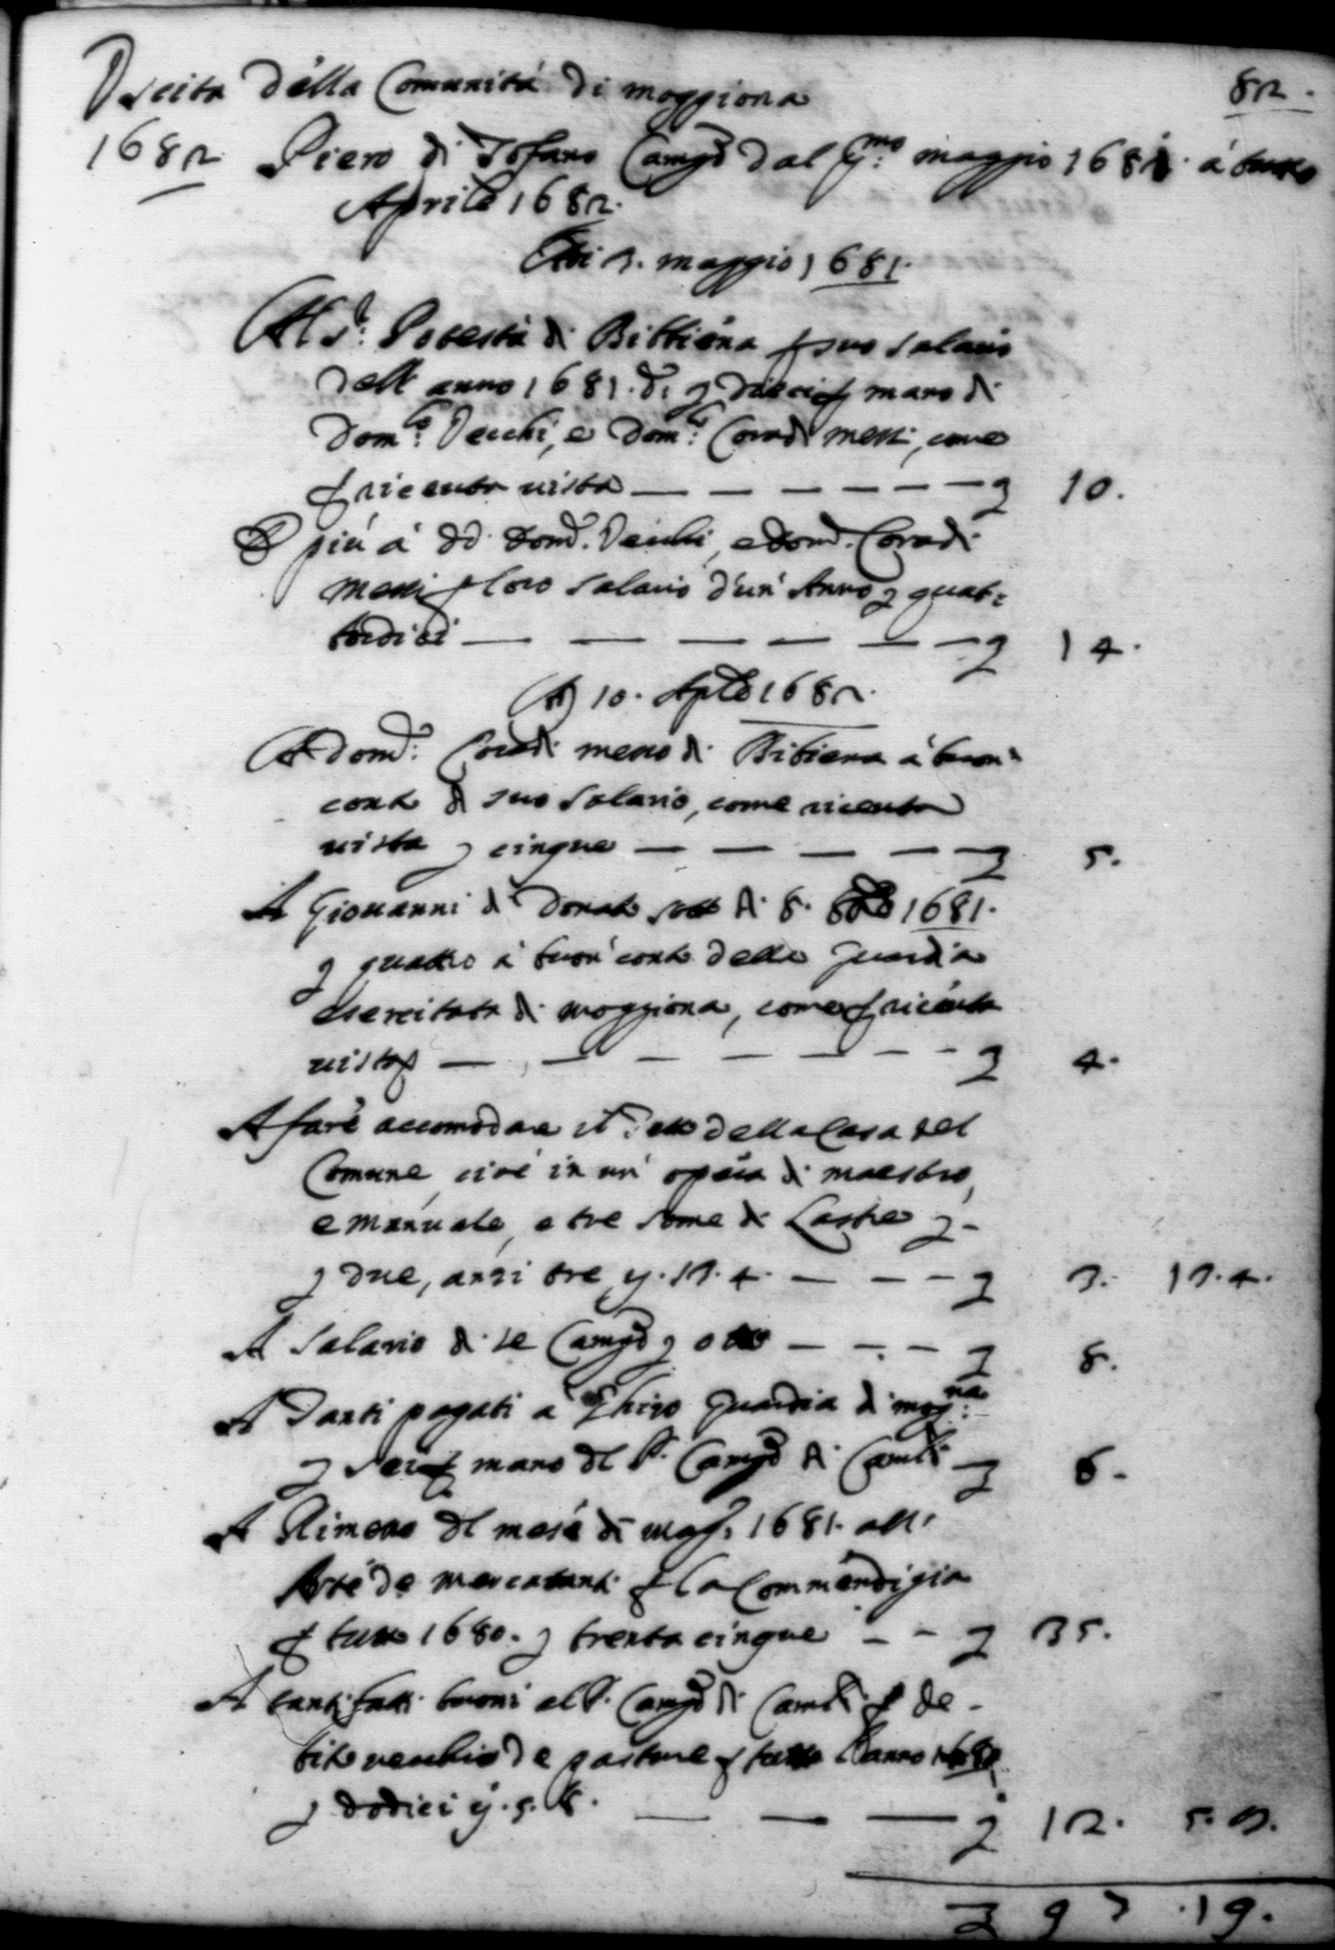 Uscita della Comunità di moggiona 82.
1682 Piero di Tofano Camgo dal p.mo maggio 1681. à tutto
Aprile 1682.
Adi 3. maggio 1681.
Al S.r Potestà di Bibbiena p suo salario
dell anno 1681. di ʒ dieci p mano di
Dom.co Vecchi, e Dom.co Coradi messi, come
p riceuta uista — — — — — — — ʒ 10.
E più à dd. Dom.o Vecchi, e Dom.o Coradi
messi p loro salario d'un' Anno ʒ quat:
tordici — — — — — — ʒ 14.
A 10. Aple 1682.
A Dom.o Coradi messo di Bibiena à buon
conto di suo salario, come riceuta
uista ʒ cinque — — — — — ʒ 5.
A Giouanni di Donato sotto di 8. 8bre 1681.
ʒ quattro à buon' conto della guardia
esercitata di moggiona, come p riceuta
uista — — — — — — — — ʒ 4.
A fare accomodare il tetto della Casa del
Comune, cioè in un' opera di maestro,
e manuale, e tre some di Lastre ʒ -
ʒ due, anzi tre, y. 13. 4. — — — — ʒ 3. 13. 4.
A salario di se Camgo ʒ otto — — — ʒ 8.
A Danti pagati a Ghigo guardia di mog.na
ʒ sei p mano del P. Camgo di Camli — ʒ 6 -
A Rimesso del mese di mag: 1681. all'
Arte de mercatanti p la Commendigia
p tutto 1680. ʒ trenta cinque — — ʒ 35.
A tanti fatti buoni al P. Camgo di Camli p de-
bito uecchio de pasture p tutto l'anno 1680
ʒ dodici y. 5. 8. — — — ʒ 12. 5. 8.
ʒ 97 . 19.